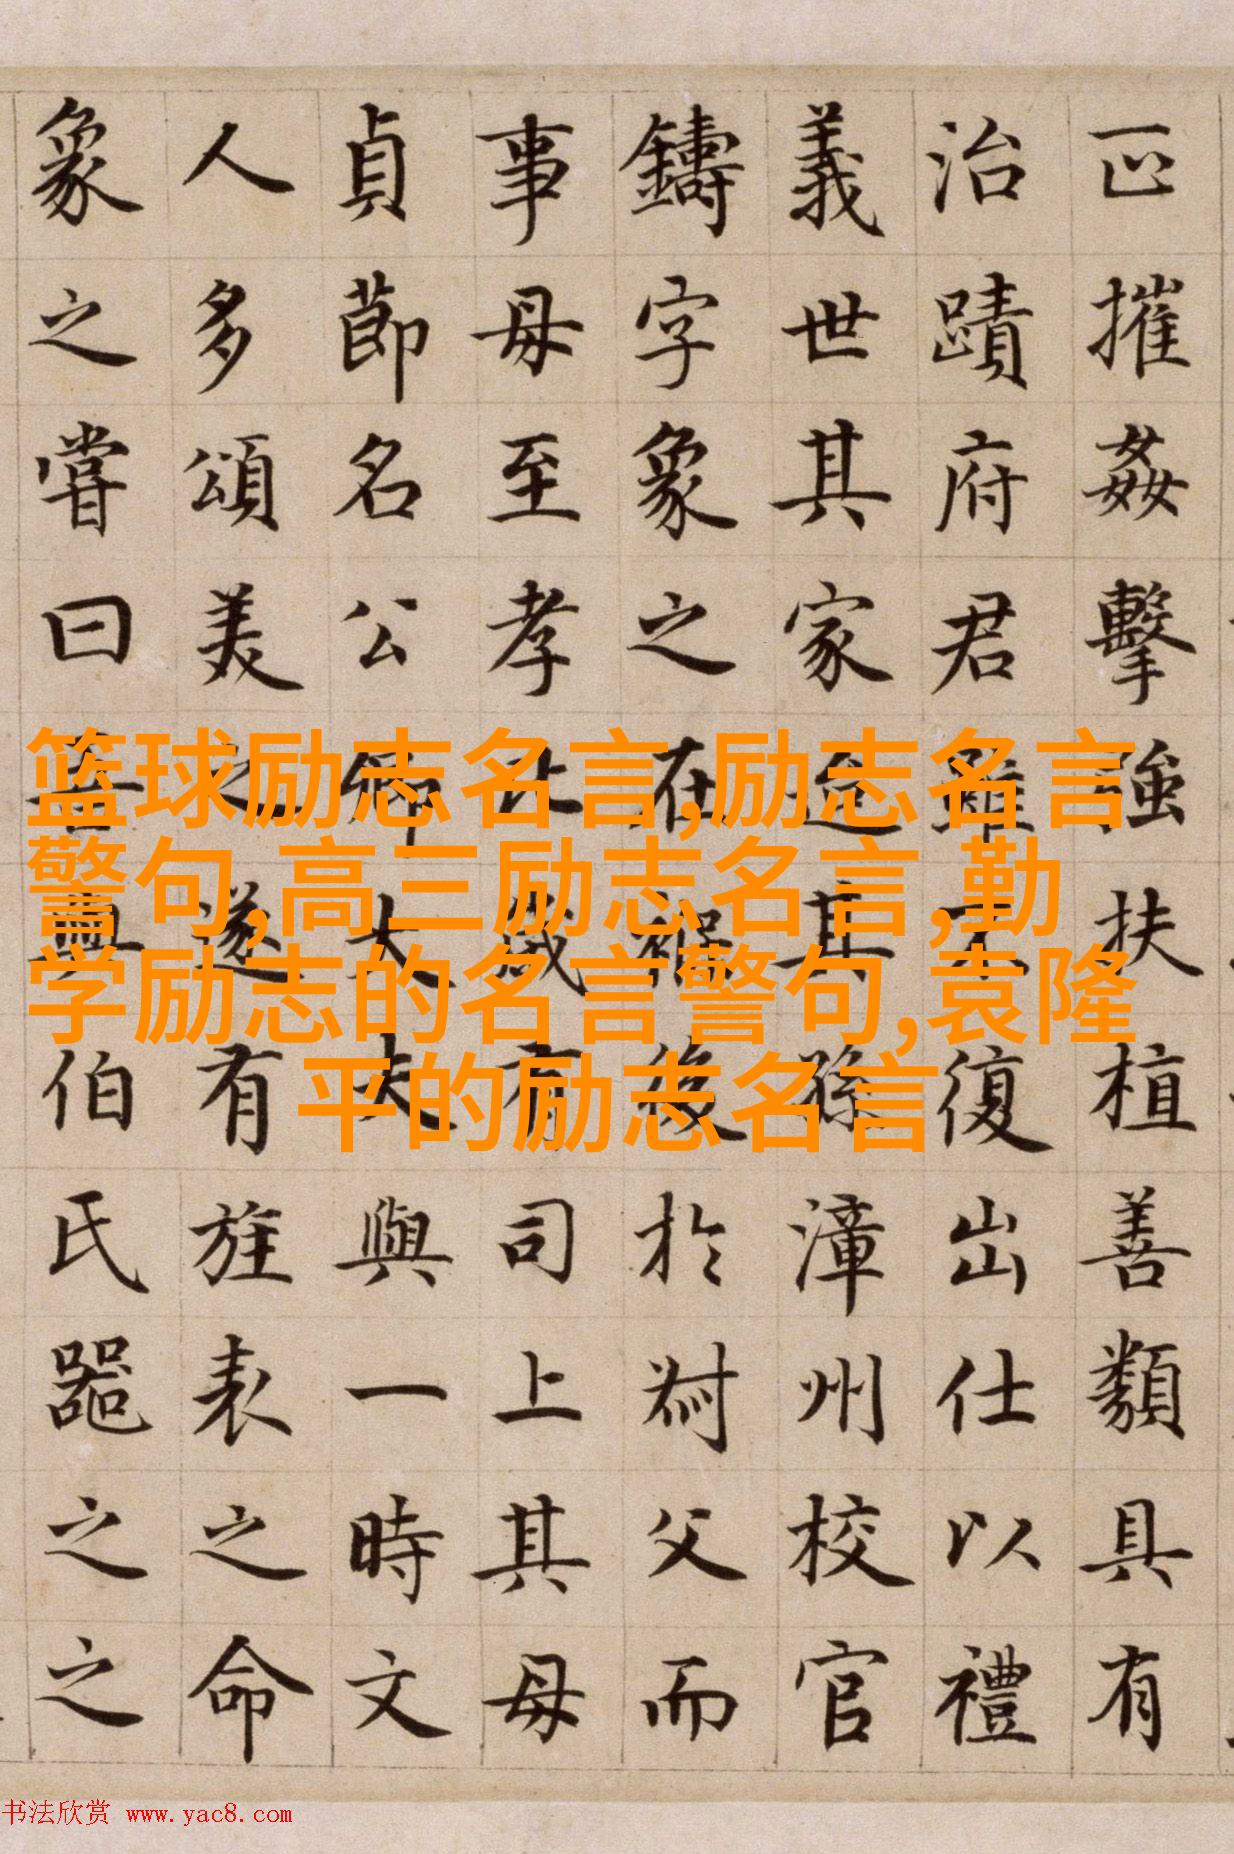 摧姦擊強扶植善類具有
治蹟府君雖不復出仕以禮
義世其家迨其孫漳州校官
鑄字象之在後於父而
事母至孝歲有司上其母
貞節名公卿大夫與一時文
人多頌美之遂有旌表之命
象之嘗曰吾與伯氏噐之之
篮球励志名言,励志名言
警句,高三励志名言,勤
学励志的名言警句,袁隆
平的励志名言
书法欣赏 www.yac8.com